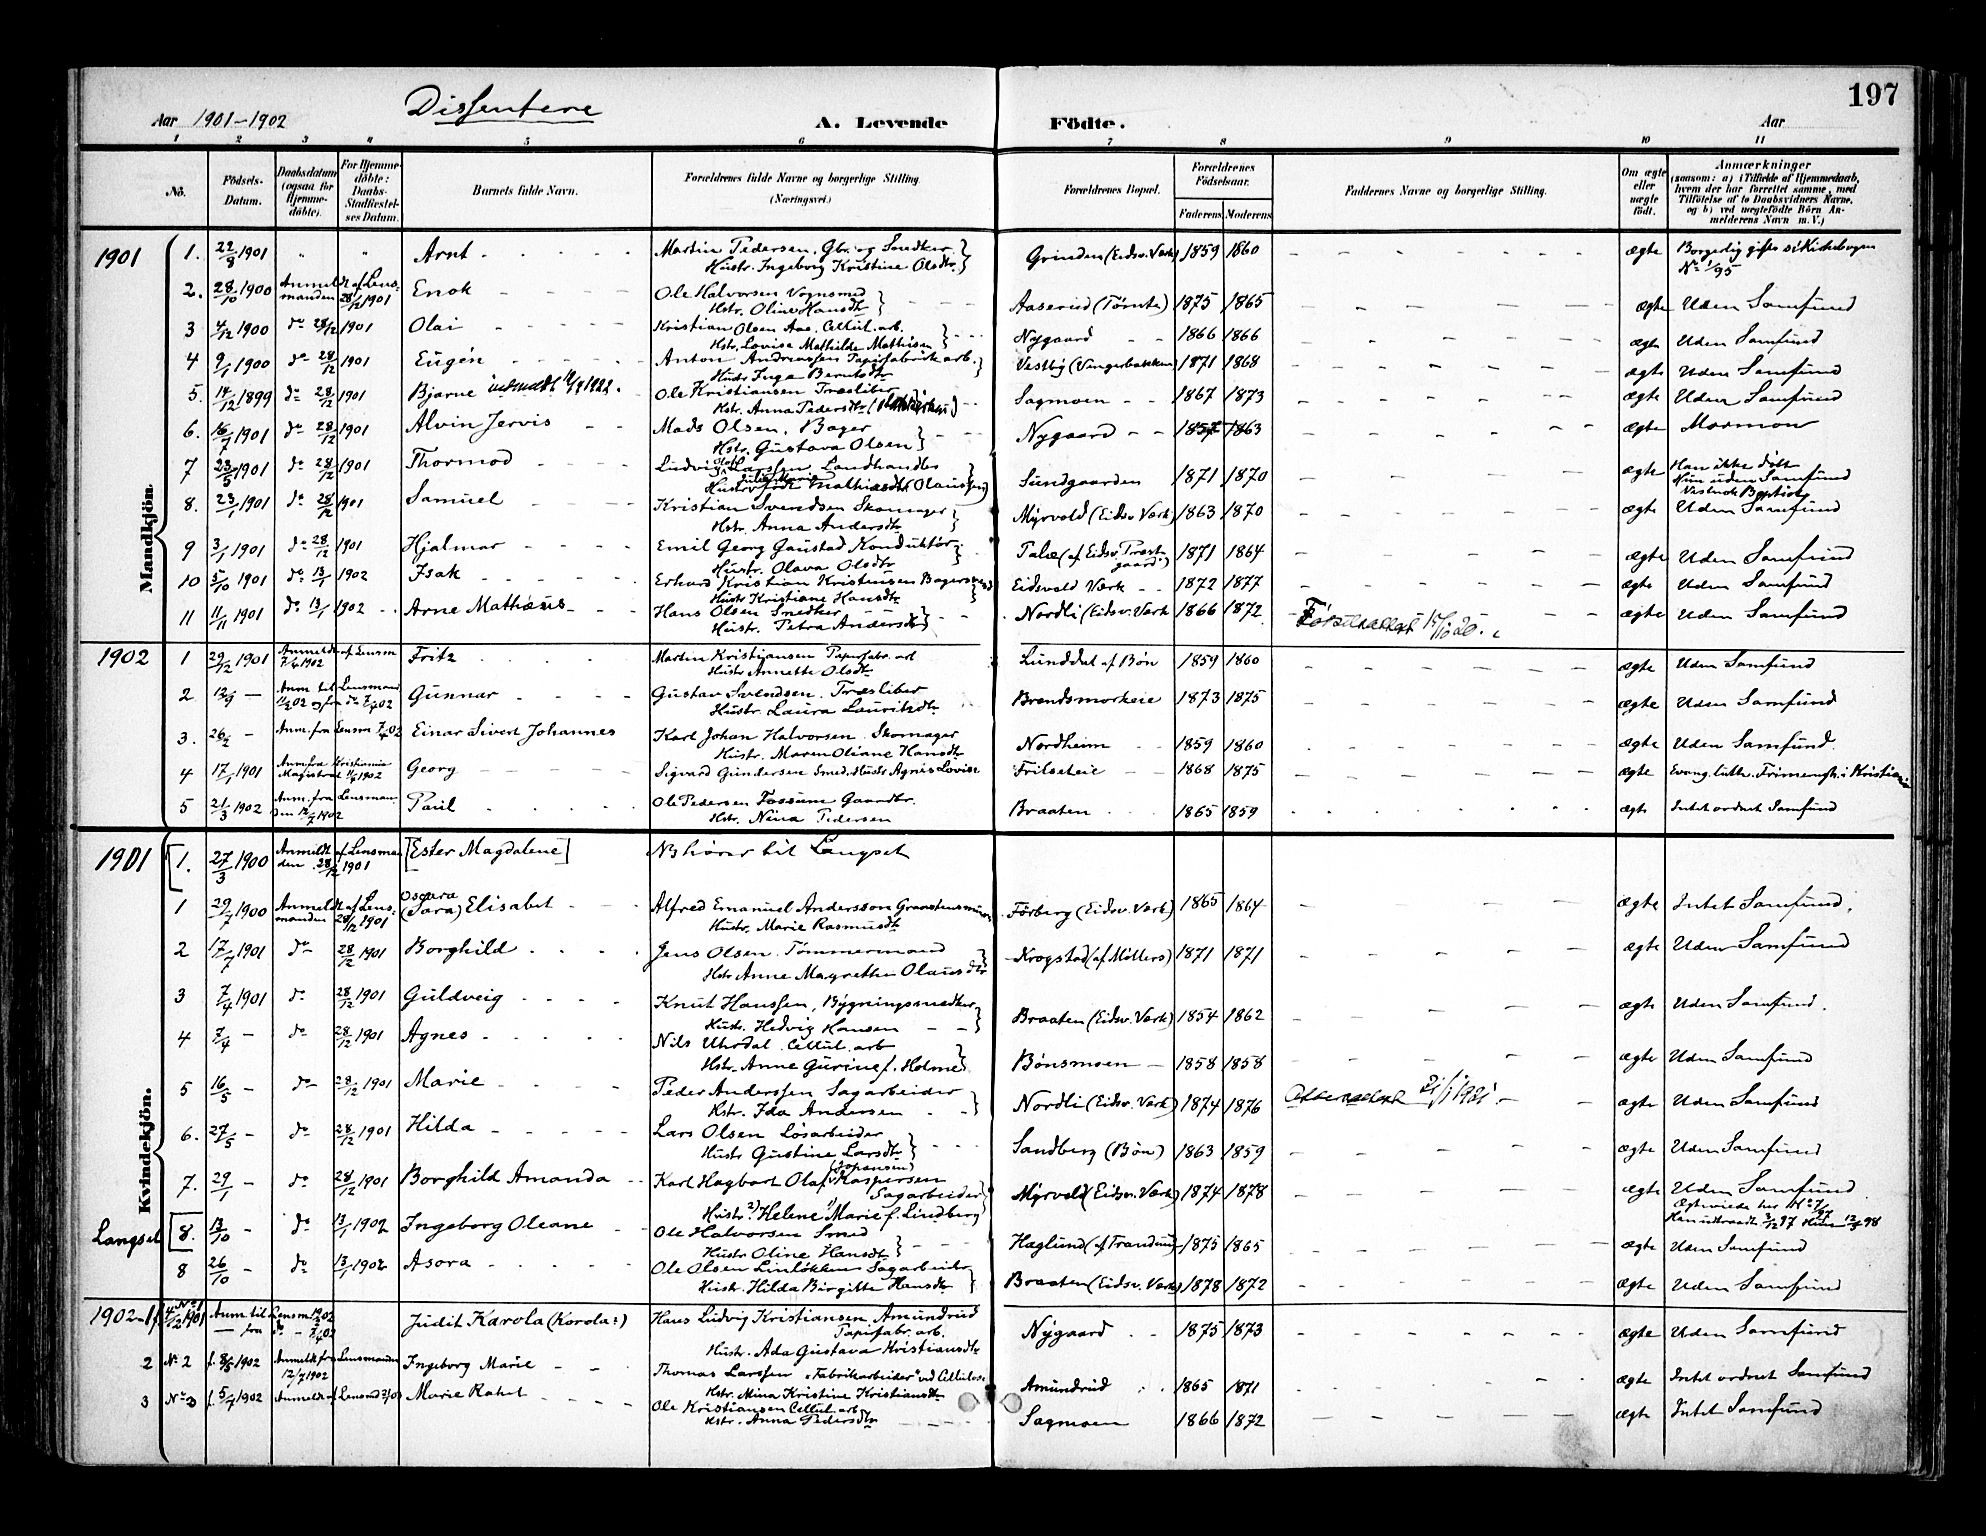 197
Aar 1901-1902 Dissentere A. Levende Födte. Aar
1 2 3 4 5 6 7 8 9 10 11
Nö. Födsels-Datum. Daabsdatum (ogsaa for Hjemmedöbte). For Hjemmedöbte: Daabs-Stadfæstelses Datum. Barnets fulde Navn. Forældrenes fulde Navne og borgerlige Stilling. (Næringsvei.) Forældrenes Bopæl. Forældrenes Födselsaar. Faderens Moderens Faddernes Navne og borgerlige Stilling. Om ægte eller uægte födt. Anmærkninger (saasom: a) i Tilfælde af Hjemmedaab, hvem der har forrettet samme, med Tilföielse af to Daabsvidners Navne, og b) ved uægtefödte Börn Anmelderens Navn m. V.)
Mandkjön.
1901 1. 22/8 1901 " " Arnt Martin Pedersen, Gbr. og Snedker Grinden (Eidsv. Værk) 1859 1860 ægte Borgerlig gifte s. i Kirkebogen
Hustr. Ingeborg Kristine Olsdtr. No 1/95
2. 28/10 1900 Anmeldt af Lensmanden 28/12 1901 Enok Ole Halvorsen Vognsmed Aaserud (Tørnte) 1875 1865 ægte Uden Samfund
Hstr. Oline Hansdtr
3 4/12 1900 do 28/12 1901 Olai Kristian Olsen Aae. Cellul. arb. Nygaard 1866 1866 ægte Uden Samfund
Hstr. Lovise Mathilde Mathisen
4 9/1 1900 do 28/12 1901 Eugén Anton Andreassen Papirfabrik arb. Vestby (Vingerbakken 1871 1868 ægte Uden Samfund
Hustr Inga Berntsdtr
5. 14/12 1899 do 28/12 1901 Bjarne Ole Kristiansen Træsliber Sagmoen 1867 1873 ægte Uden Samfund
Hstr. Anna Pedersdtr
6. 16/7 1901 do 28/12 1901 Alvin Jervis Mads Olsen, Bager Nygaard 1857 1863 ægte Mormon
Hstr. Gustava Olsen
7 23/5 1901 do 28/12 1901 Thormod Ludvig Olaf Larssen Landhandler Sundgaarden 1871 1870 ægte Han ikke döbt
Hun uden Samfund
8. 23/1 1901 do 28/12 1901 Samuel Kristian Svendsen Skomager Myrvold (Eidsv. Værk 1863 1870 ægte Uden Samfund
Hstr. Anna Andersdtr
9 3/1 1901 do 28/12 1901 Hjalmar Emil Georg Gaustad Konduktör Palæ (af Eidsv. Præstgaard) 1871 1864 ægte Uden Samfund
Hustr. Olava Olsdtr
10 5/10 1901 do 13/1 1902 Isak Erhard Kristian Kristensen Bagersvend Eidsvold Værk 1872 1877 ægte Uden Samfund
Hustr Kristiane Hansdtr
11 11/11 1901 do 13/1 1902 Arne Mathæus Hans Olsen Snedker Nordli (Eidsv. Værk 1866 1872 ægte Uden Samfund
Hustr. Petra Andersdtr
1902 1 29/12 1901 Anmeldt af Lensm 7/4 1902 Fritz Martin Kristiansen Papirfabr. arb Lunddal af Bön 1859 1860 ægte Uden Samfund
Hustr Annette Olsdtr
2 12/9 — Anm til Lensmand 11/2 02 og fra do 7/4 02 Gunnar Gustav Svendsen. Træsliber Brændsmorkeie 1873 1875 ægte Uden Samfund
Hustr. Laura Lauritzdtr
3. 26/2 — Anm. fra Lensm 7/4 02 Einar Sivert Johannes Karl Johan Halvorsen. Skomager Nordheim 1859 1860 ægte Uden Samfund.
Hustr. Maren Oliane Hansdtr
4 17/1 1901 Anm fra Kristiania Magistrat 11/4 1902 Georg Sigvard Gundersen Smed. Hustr Agnes Lovise Frilseteie 1868 1875 ægte Evang. luth. Frimengh. i Kristiania
5 21/3 1902 Anm. fra Lensman den 12/7 1902 Paul Ole Pedersen Fossum Gaardbr. Braaten 1865 1859 ægt Intet ordnet Samfund
Hstr. Nina Pedersen
Kvindekjön.
1901 [1. 27/3 1900 Anmeldt af Lensmanden 28/12 1901 [Ester Magdalene] NB hörer til Langset
1 29/7 1900 Anmeldt af Lensmanden 28/12 1901 Oscara (Sara) Elisabet Alfred Emanuel Andersson Graastensminör Förberg (Eidsv. Værk) 1865 1864 ægte Intet Samfund.
Hustr. Marie Rasmusdtr
2 17/7 1901 do 28/12 1901 Borghild Jens Olsen Tömmermand Krogstad (af Möllers) 1871 1871 ægte Uden Samfund
Hstr Anne Magrethe Olausdtr
3 7/4 1901 do 28/12 1901 Guldveig Knut Hanssen, Bygningssnedker Braaten (Eidsv. Værk) 1854 1862 ægte Uden Samfund.
Hustr. Hedvig Hansen
4 7/4 — do 28/12 1901 Agnes Nils Uhrdal. Cellul. arb Bönsmoen 1858 1858 ægte Uden Samfund
Hstr. Anne Gurine f. Holmed
5 16/5 — do 28/12 1901 Marie Peder Anderssen Sagarbeider Nordli (Eidsv. Værk) 1874 1876 21/1 1921 ægte Uden Samfund
Hstr. Ida Andersen
6. 27/5 — do 28/12 1901 Hilda Lars Olsen Lösarbeider Sandberg (Bön) 1863 1859 ægte Uden Samfund
Hustr Gustine Larsdtr
7. 29/1 — do 28/12 1901 Borghild Amanda Karl Hagbart Olaf Kaspersen Sagarbeider Myrvold (Eidsv. Værk) 1874 1878 ægte Uden Samfund
Hustr. Helene Marie f. Lindberg
Langset [8. 13/10 — do 13/1 1902 Ingeborg Oleane Ole Halvorsen Smed Hæglund (af Trandum 1875 1865 ægte Uden Samfund
Hustr Oline Hansdtr
8 26/10 — do 13/1 1902 Asora Ole Olsen Linlökken Sagarbeider Braaten (Eidsv. Værk) 1878 1872 ægte Uden Samfund
Hustr. Hilda Birgitte Hansdtr
1902 No 1 4/12 1901 Anm til Lensm 1902 — fra do 7/4 02 Judit Karola (Korola:) Hans Ludvig Kristiansen Amundrud Papirfabr. arb. Nygaard 1875 1873 ægte Uden Samfund
Hustr. Ada Gustava Kristiansdtr
2 No 2 f. 8/5 1902 Anmeldt fra Lensmanden 12/7 1902 Ingeborg Marie Thomas Larssen "Fabrikarbeider" ved Cellulose Amundrud 1865 1871 ægte Intet ordnet Samfund
Hstr. Mina Kristine Kristiansdtr
3 No 3 f. 5/7 1902 Anmeldt af Lensmd Marie Rakel Ole Kristiansen Cellul. arb. Sagmoen 1866 1872 ægte Intet Samfund
Hstr. Anna Pedersdtr